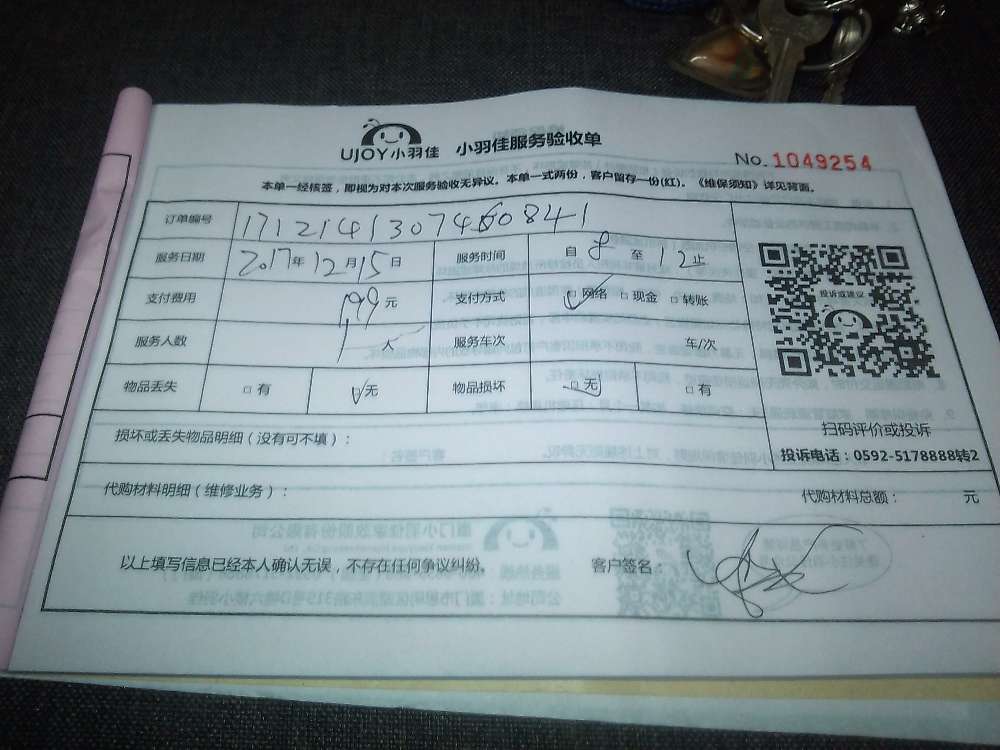 UJOY小羽佳 小羽佳服务验收单
No. 1049254
本单一经核签，即视为对本次服务验收无异议。本单一式两份，客户留存一份(红)。《维保须知》详见背面。
订单编号 1712141307460841
服务日期 2017年12月15日 服务时间 自8至12止
支付费用 199元 支付方式 □网络 □现金 □转账
服务人数 1人 服务车次 车/次
物品丢失 □有 □无 物品损坏 □无 □有
投诉或建议
扫码评价或投诉
投诉电话：0592-5178888转2
损坏或丢失物品明细（没有可不填）：
代购材料明细（维修业务）： 代购材料总额： 元
以上填写信息已经本人确认无误，不存在任何争议纠纷。 客户签名：